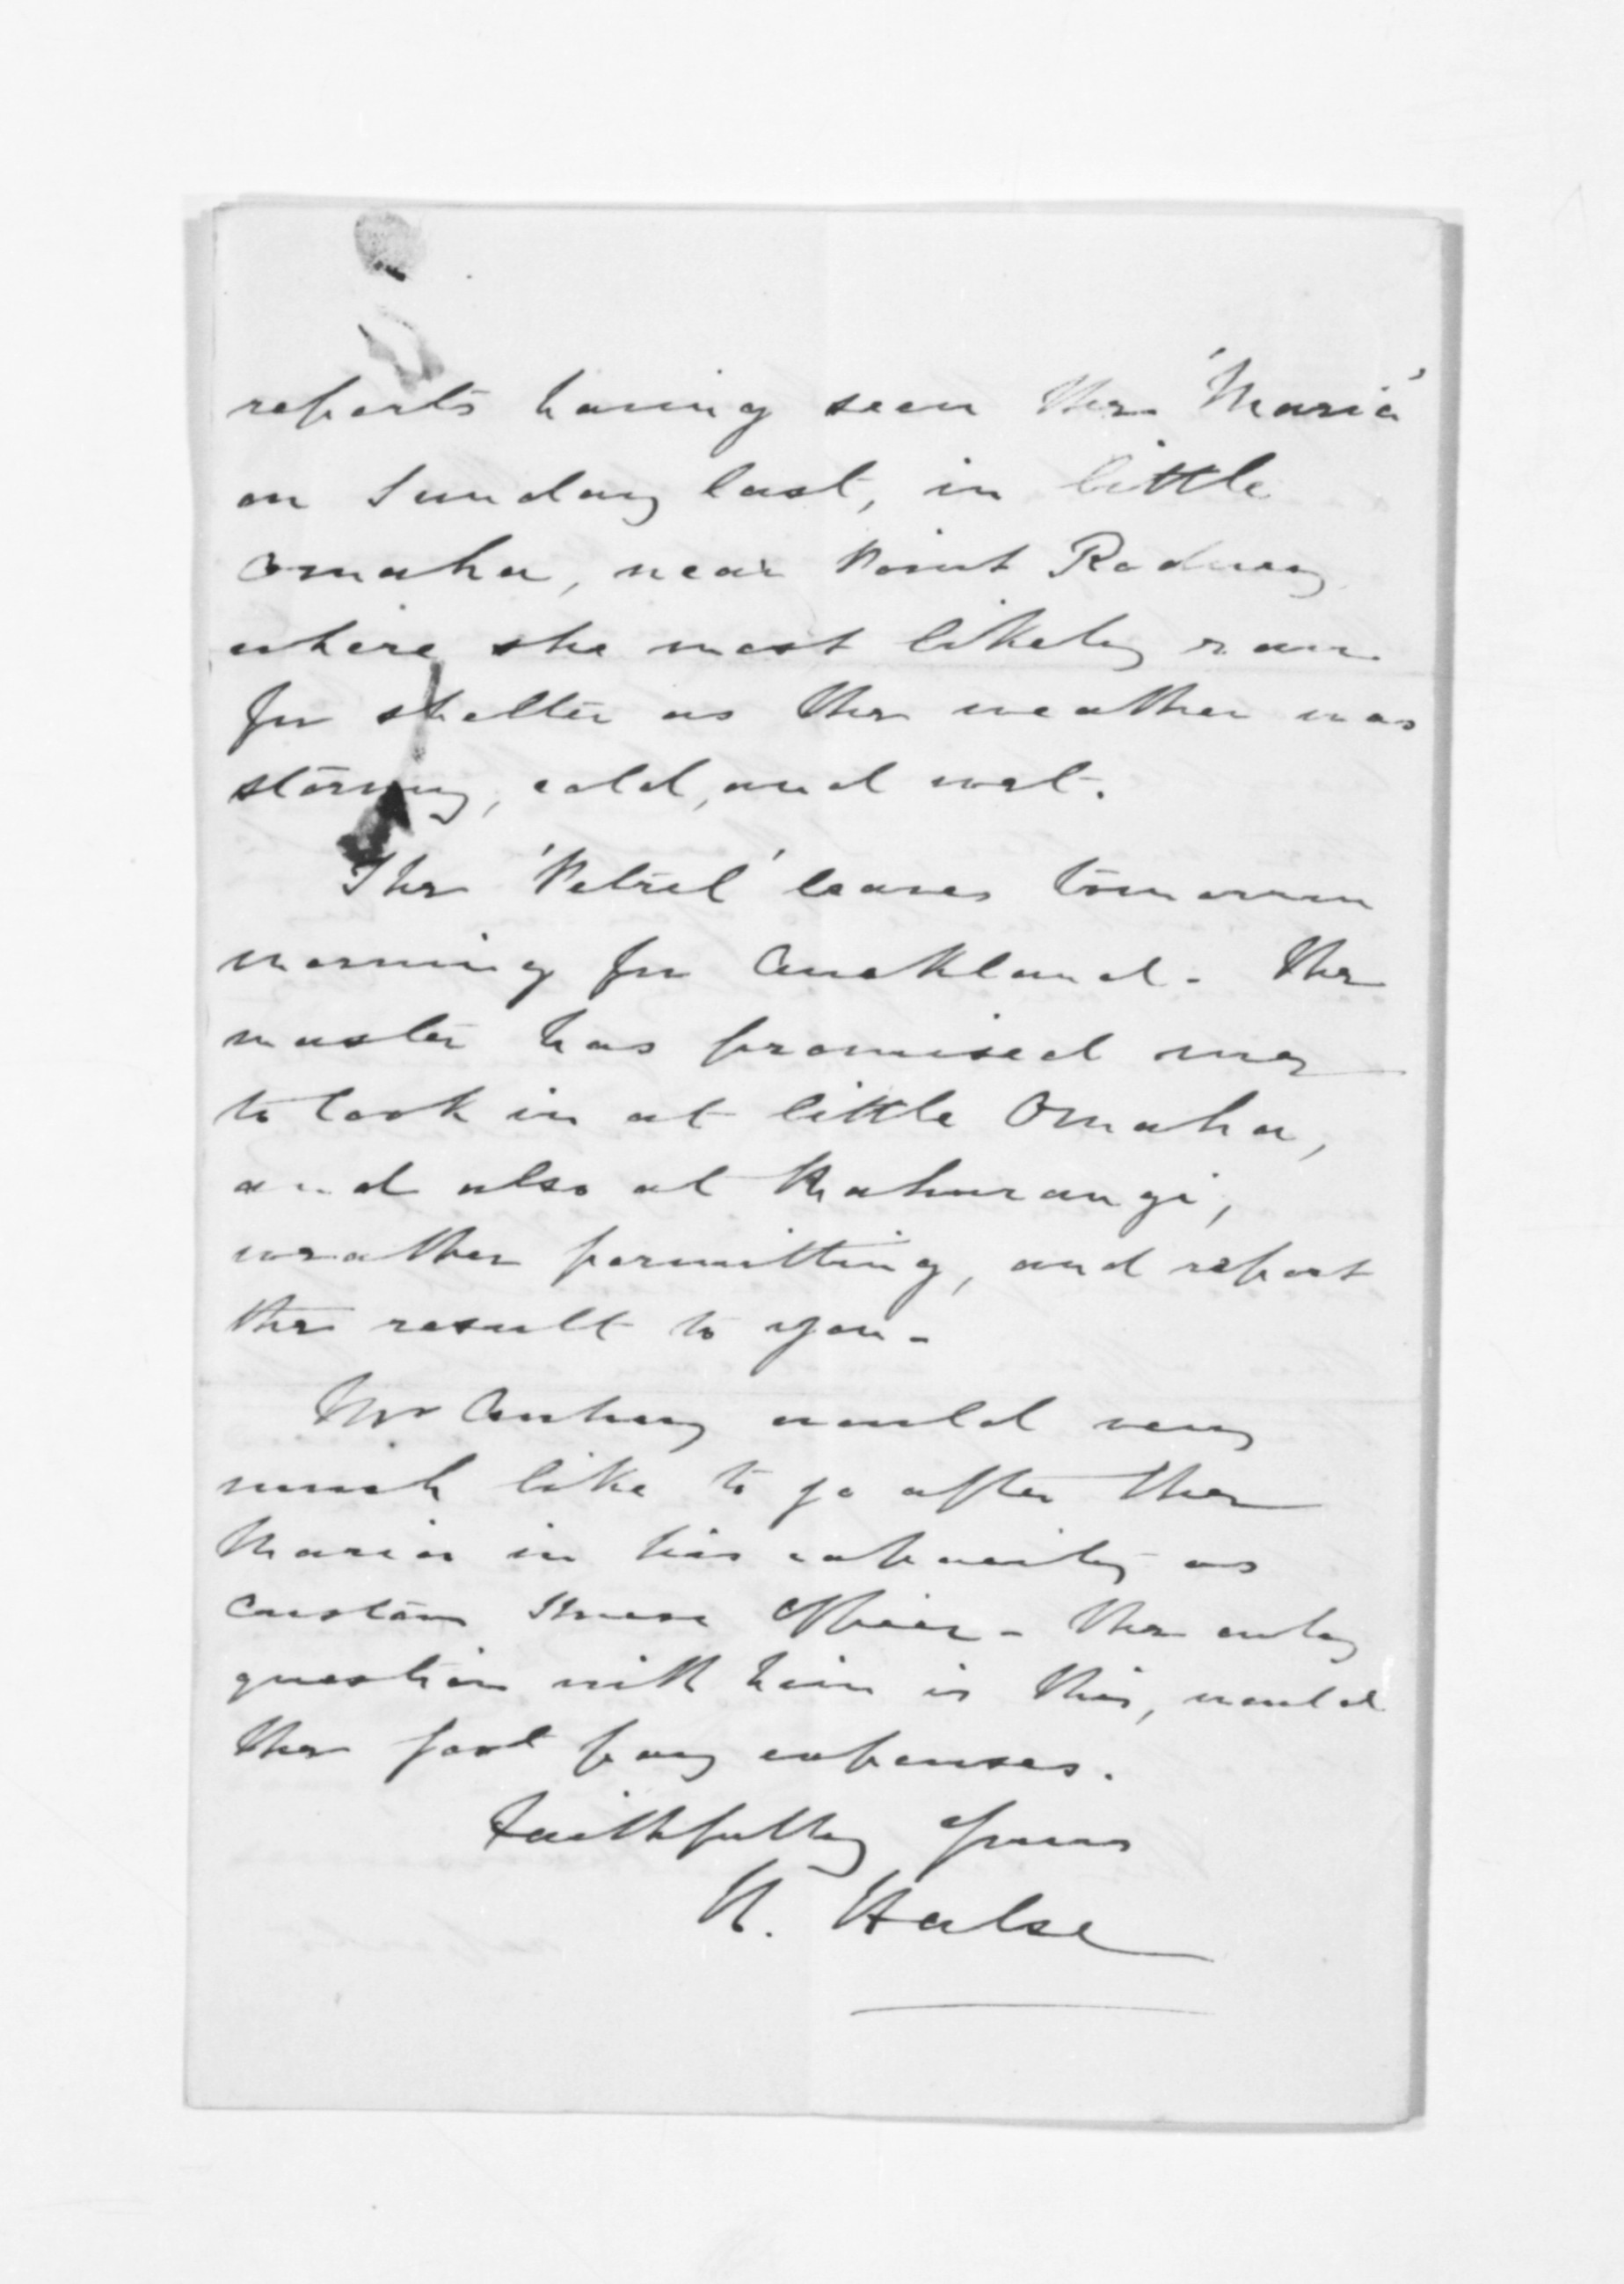 reports having seen the 'Maria'
on Sunday last, in little
Omaha, near Point Rodney
where she most likely ran
for shelter as the weather was
stormy, cold, and wet.
The 'Petrel' leaves tomorrow
morning for Auckland. The
master has promised me
to look in at little Omaha,
and also at Mahurangi,
weather permitting, and report
the result to you -
Mr would very
much like to go after the
Maria in his capacity as
Custom House Officer - The only
question with him is this, would
the Govt pay expenses.
Faithfully yours
H. Halse